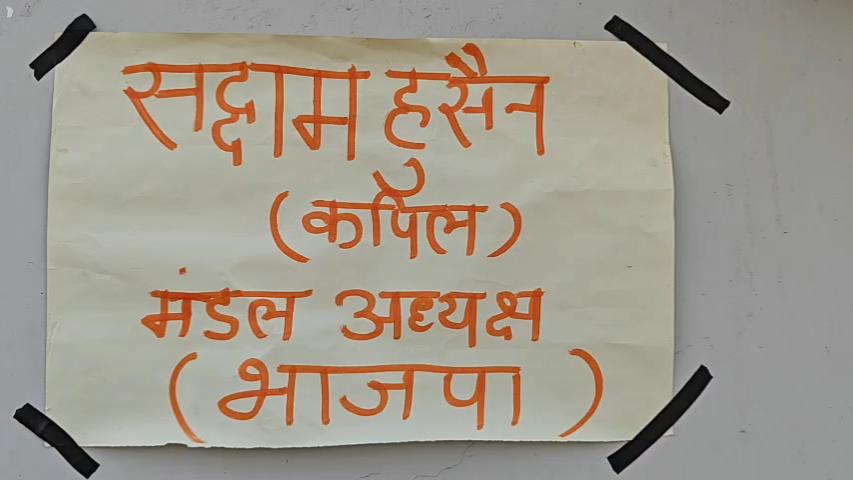 सद्दाम हुसैन
(कपिल)
मंडल अध्यक्ष
(भाजपा)